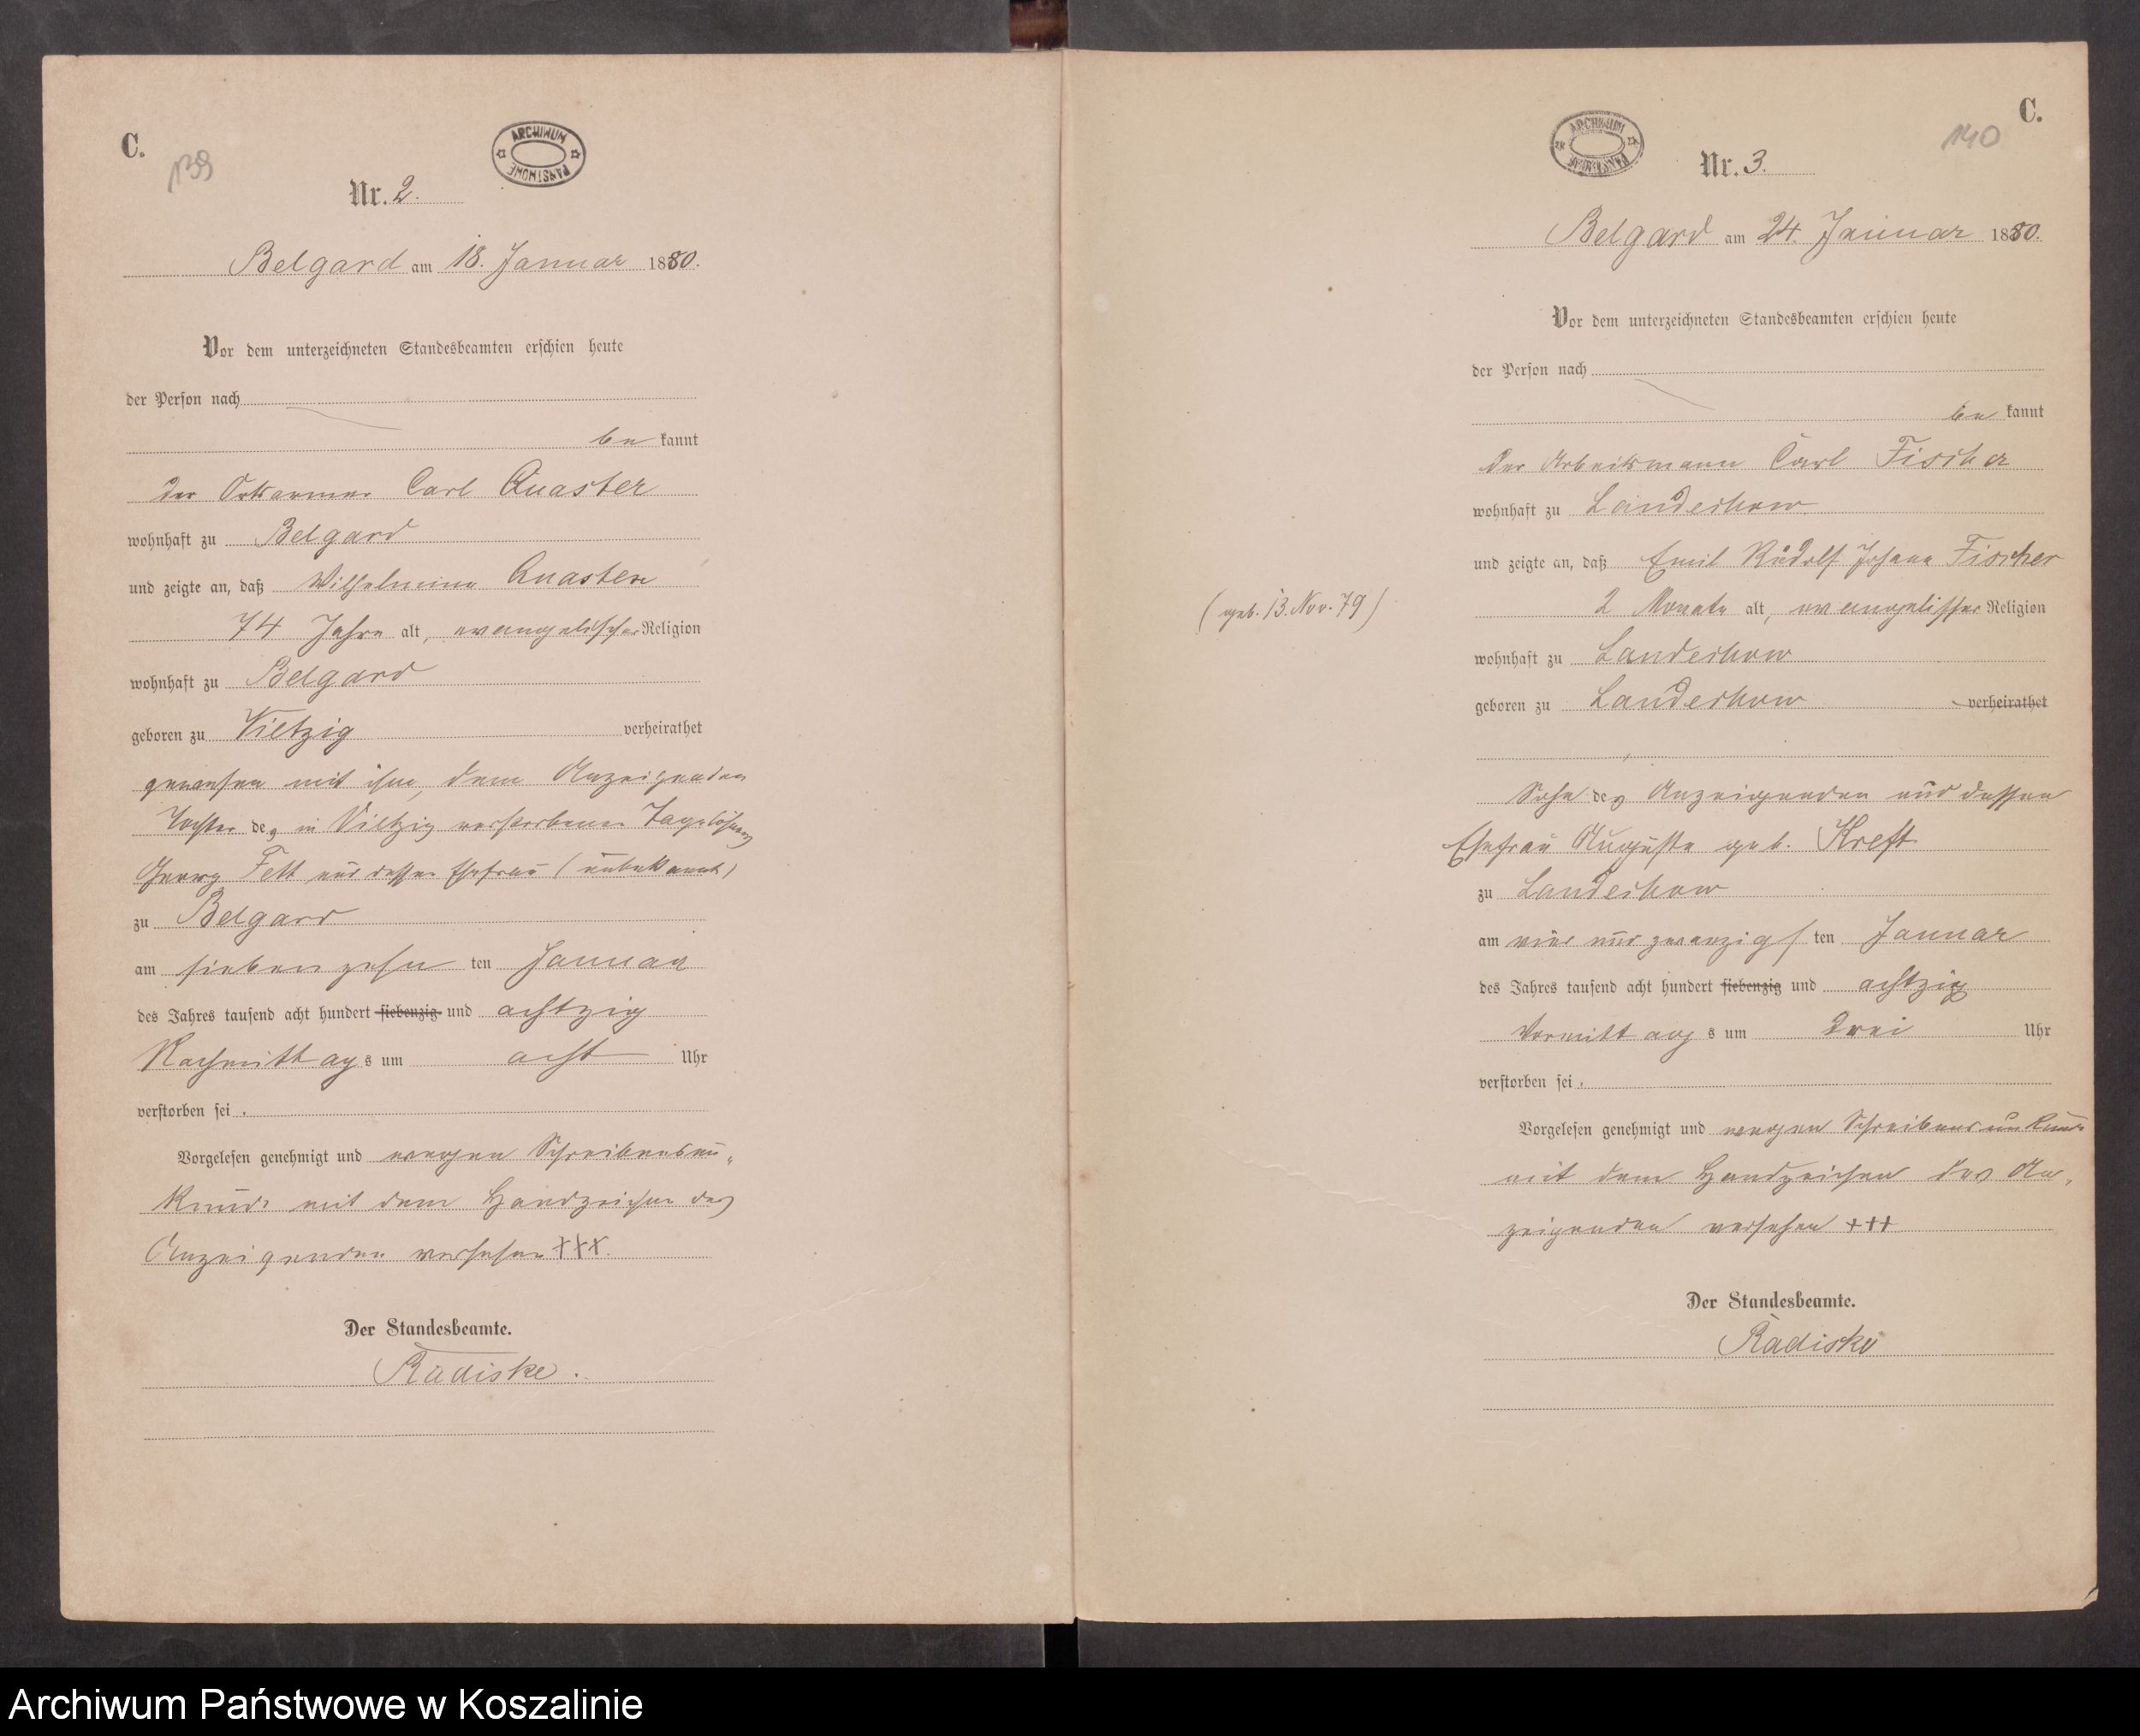 C.
139
ARCHIWUM
PAŃSTWOWE
Nr. 2.
Belgard am 18. Januar 1880.
Vor dem unterzeichneten Standesbeamten erschien heute
der Person nach
be kannt
der Ortsarmer Carl Quaster
wohnhaft zu Belgard
und zeigte an, daß Wilhelmine Quaster
74 Jahre alt, evangelischer Religion
wohnhaft zu Belgard
geboren zu Vietzig verheirathet
gewesen mit ihm, dem Anzeigenden
Tochter des in Vietzig verstorbenen Tagelöhners
Georg Fett und dessen Ehefrau (unbekannt)
zu Belgard
am siebenzehn ten Januar
des Jahres tausend acht hundert siebenzig und achtzig
Nachmittags um acht Uhr
verstorben sei.
Vorgelesen genehmigt und wegen Schreibensun-
kunde mit dem Handzeichen des
Anzeigenden versehen +++.
Der Standesbeamte.
Radiske.
C.
140
ARCHIWUM
PAŃSTWOWE
Nr. 3.
Belgard am 24. Januar 1880.
Vor dem unterzeichneten Standesbeamten erschien heute
der Person nach
be kannt
der Arbeitsmann Carl Fischer
wohnhaft zu Landechow
und zeigte an, daß Emil Rudolf Johann Fischer
(geb. 13. Nov. 79)
2 Monate alt, evangelischer Religion
wohnhaft zu Landechow
geboren zu Landechow verheirathet
Sohn des Anzeigenden und dessen
Ehefrau Auguste geb. Kreft
zu Landechow
am vier und zwanzigsten Januar
des Jahres tausend acht hundert siebenzig und achtzig
Vormittags um drei Uhr
verstorben sei.
Vorgelesen genehmigt und wegen Schreibensunkunde
mit dem Handzeichen des An-
zeigenden versehen +++
Der Standesbeamte.
Radiske
Archiwum Państwowe w Koszalinie